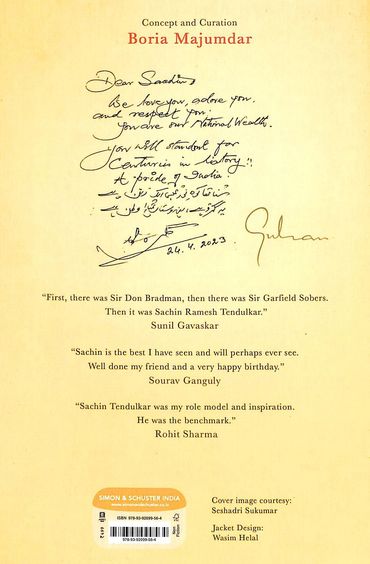 Concept and Curation
Boria Majumdar
Dear Sachin,
We love you, adore you,
and respect you.
You are our National Wealth.
You will standout for
Centuries in history!!
A pride of India.
24.4.2023
Gulzar
“First, there was Sir Don Bradman, then there was Sir Garfield Sobers.
Then it was Sachin Ramesh Tendulkar.”
Sunil Gavaskar
“Sachin is the best I have seen and will perhaps ever see.
Well done my friend and a very happy birthday.”
Sourav Ganguly
“Sachin Tendulkar was my role model and inspiration.
He was the benchmark.”
Rohit Sharma
SIMON & SCHUSTER INDIA
www.simonandschuster.co.in
ISBN 978-93-92099-56-4
978-93-92099-56-4
Non
Fiction
Cover image courtesy:
Seshadri Sukumar
Jacket Design:
Wasim Helal